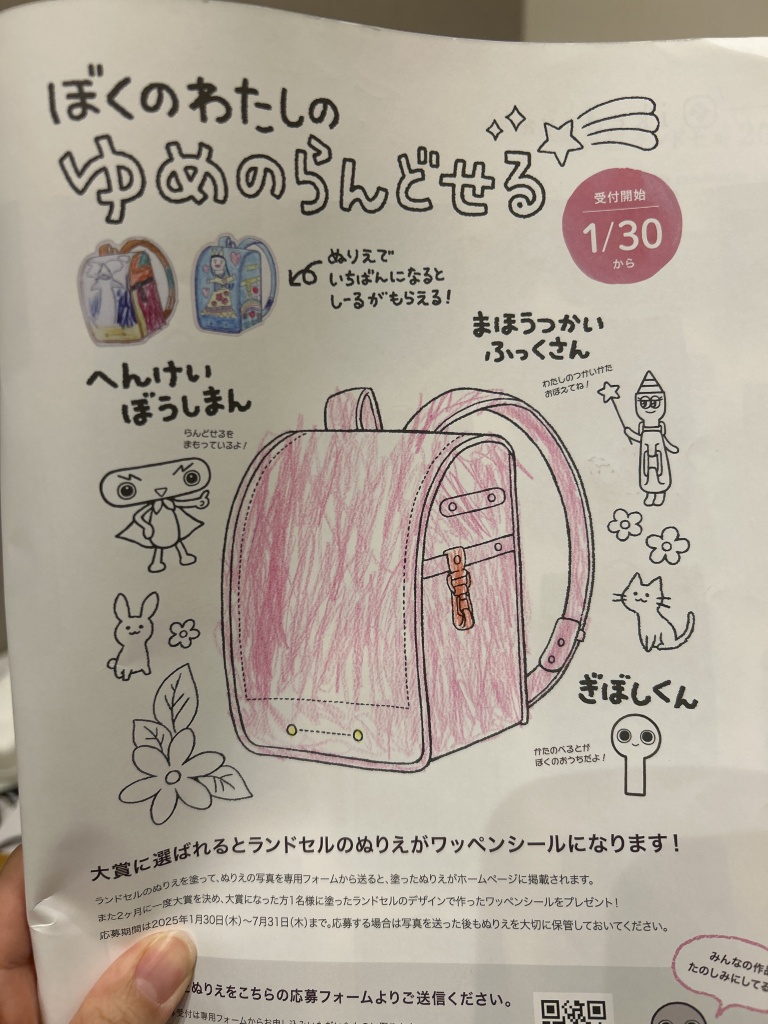 ぼくのわたしの
ゆめのらんどせる
受付開始
1/30
から
ぬりえで
いちばんになると
しーるがもらえる！
まほうつかい
ふっくさん
わたしのつかいかた
おぼえてね！
へんけい
ぼうしまん
らんどせるを
まもっているよ！
ぎぼしくん
かたのべるとが
ぼくのおうちだよ！
大賞に選ばれるとランドセルのぬりえがワッペンシールになります！
ランドセルのぬりえを塗って、ぬりえの写真を専用フォームから送ると、塗ったぬりえがホームページに掲載されます。
また2ヶ月に一度大賞を決め、大賞になった方1名様に塗ったランドセルのデザインで作ったワッペンシールをプレゼント！
応募期間は2025年1月30日(木)〜7月31日(木)まで。応募する場合は写真を送った後もぬりえを大切に保管しておいてください。
みんなの作品
たのしみにしてる
ぬりえをこちらの応募フォームよりご送信ください。